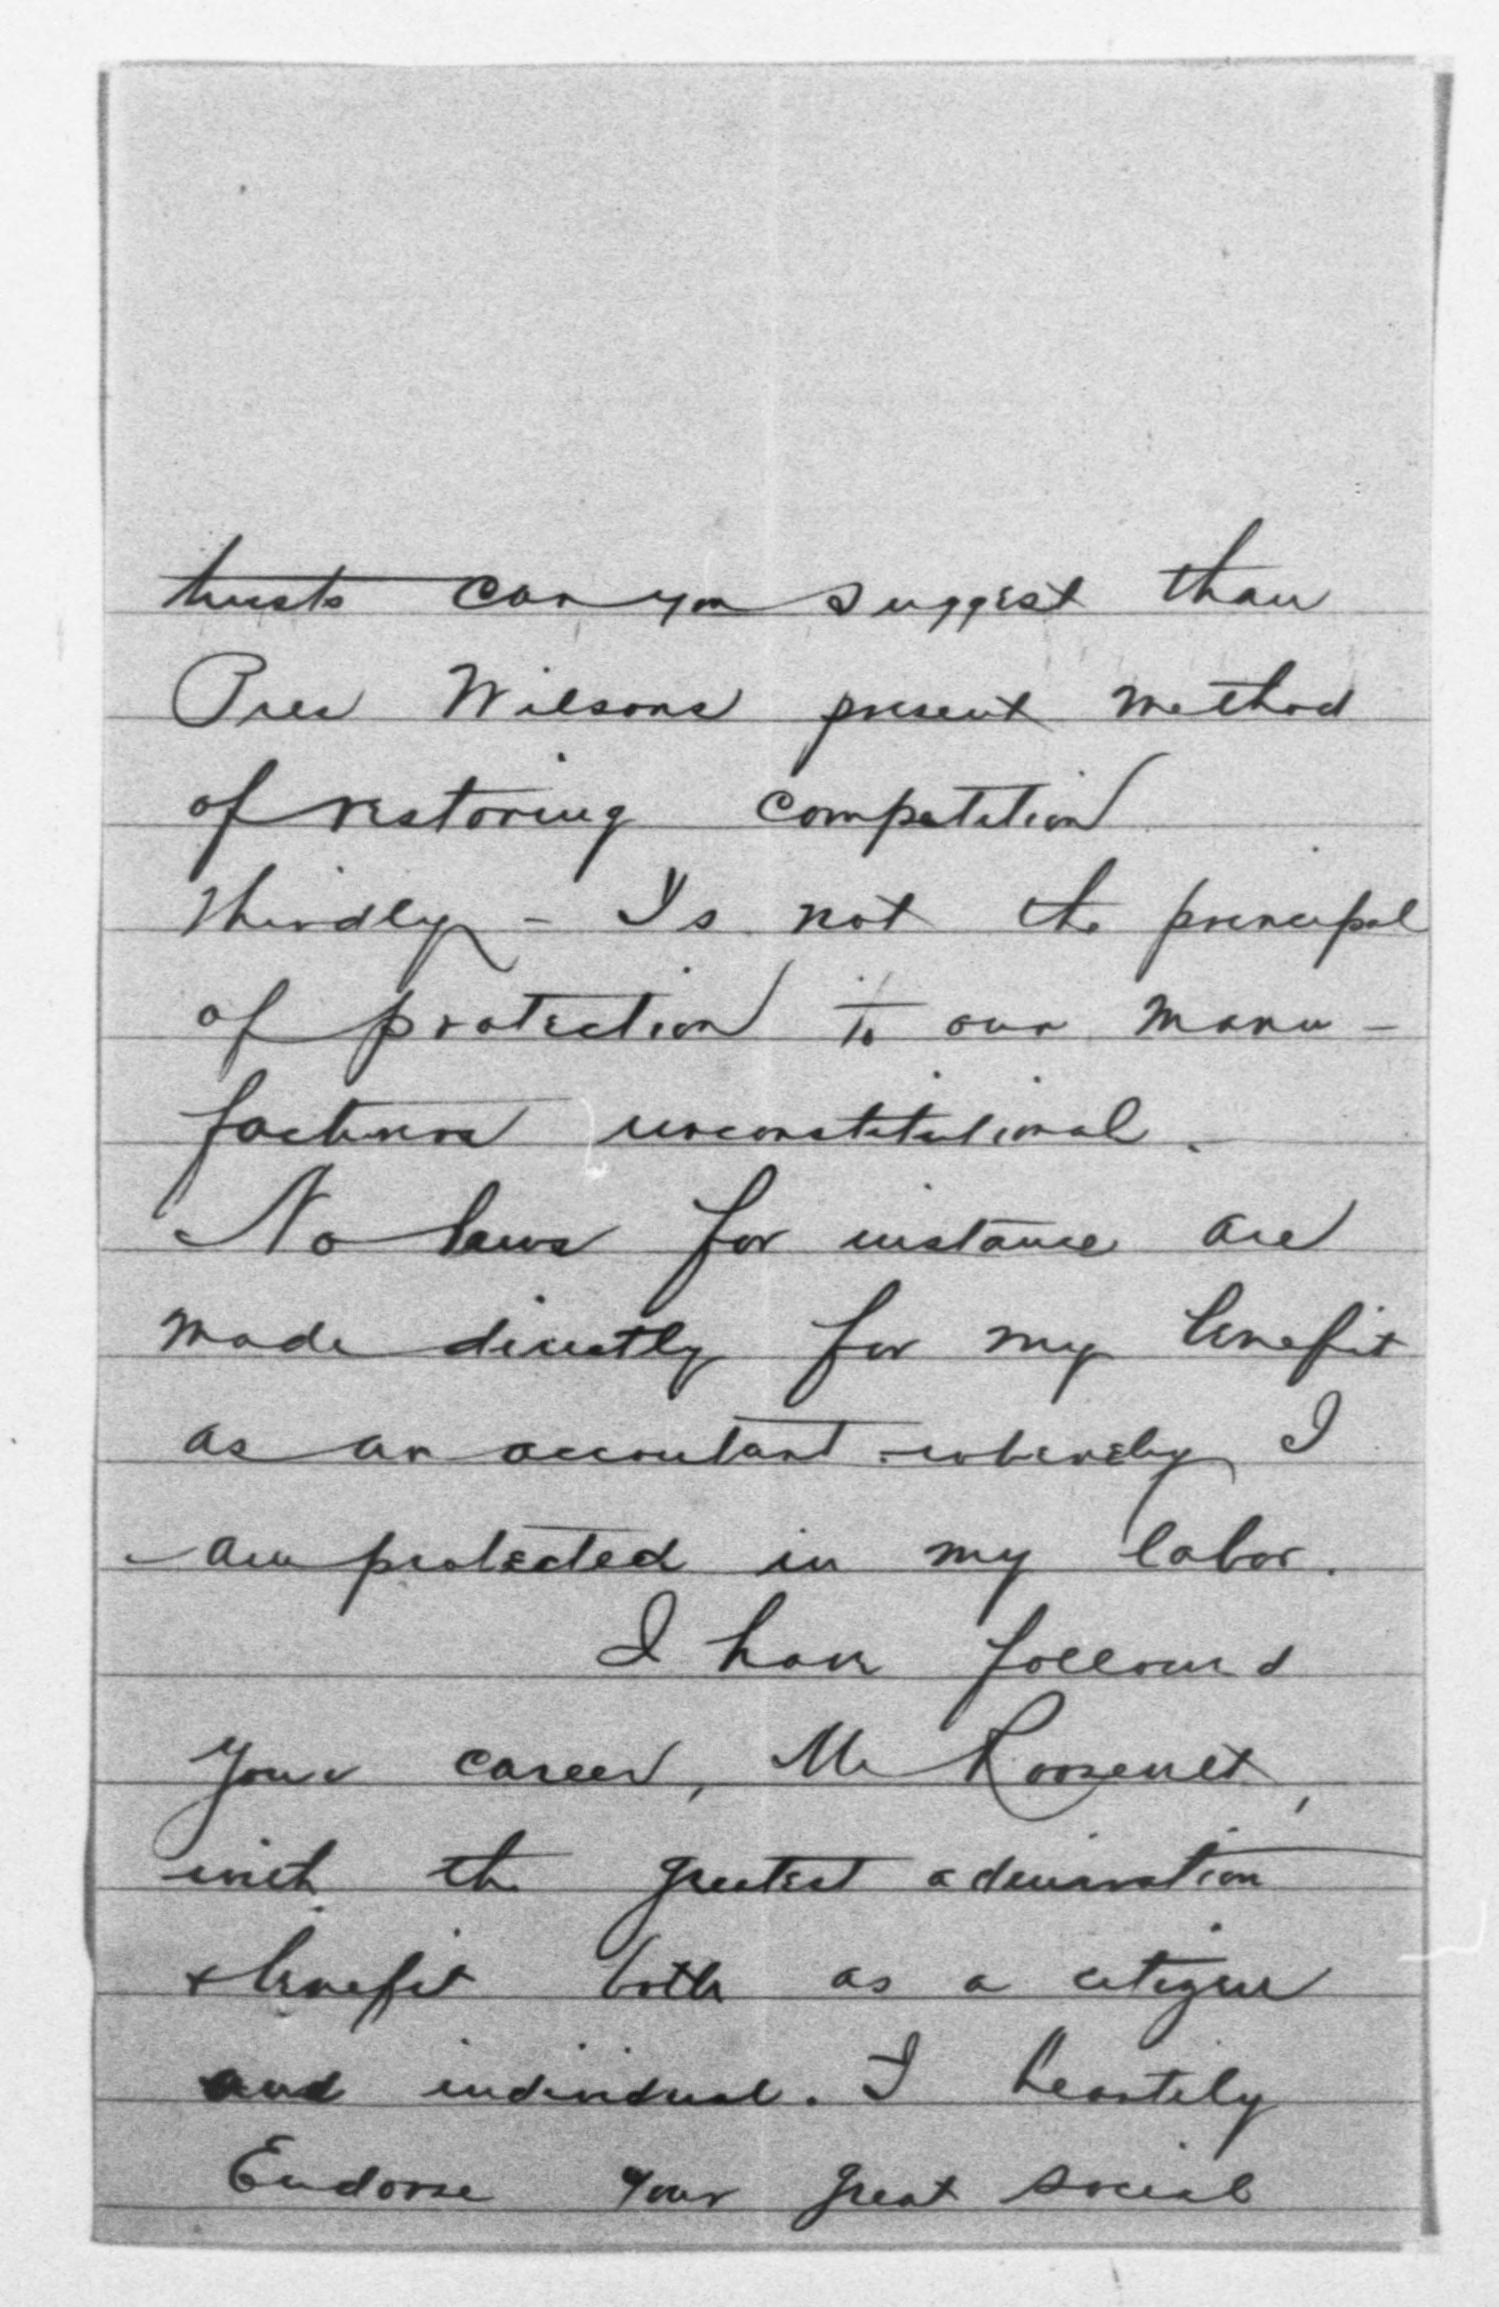 trusts can you suggest than
Pres Wilsons present method
of restoring competition
Thirdly - Is not the principal
of protection to our manu-
facturers unconstitutional.
No laws for instance are
made directly for my benefit
as an accountant whereby I
am protected in my labor.
I have followed
your career, Mr Roosevelt,
with the greatest admiration
& benefit both as a citizen
and individual. I heartily
Endorse your great social